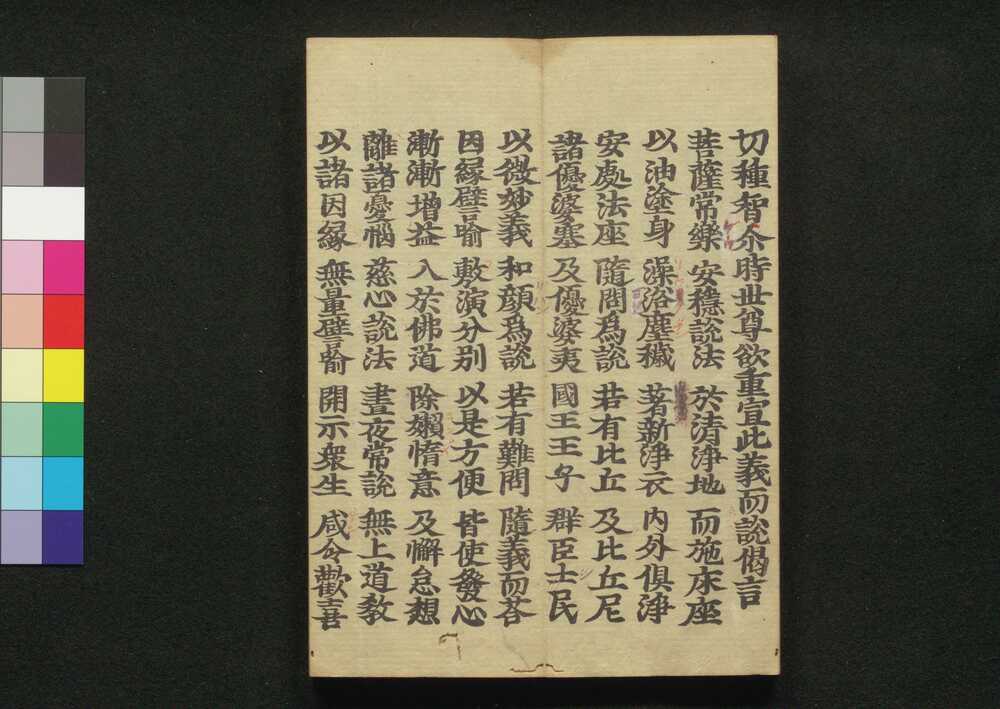 切種智尒時世尊欲重宣此義而說偈言
菩薩常樂 安穩說法 於清淨地 而施床座
以油塗身 澡浴塵穢 著新淨衣 內外俱淨
安處法座 隨問為說 若有比丘 及比丘尼
諸優婆塞 及優婆夷 國王王子 群臣士民
以微妙義 和顏為說 若有難問 隨義而荅
因緣譬喻 敷演分別 以是方便 皆使發心
漸漸增益 入於佛道 除嬾惰意 及懈怠想
離諸憂惱 慈心說法 晝夜常說 無上道教
以諸因緣 無量譬喻 開示衆生 咸令歡喜